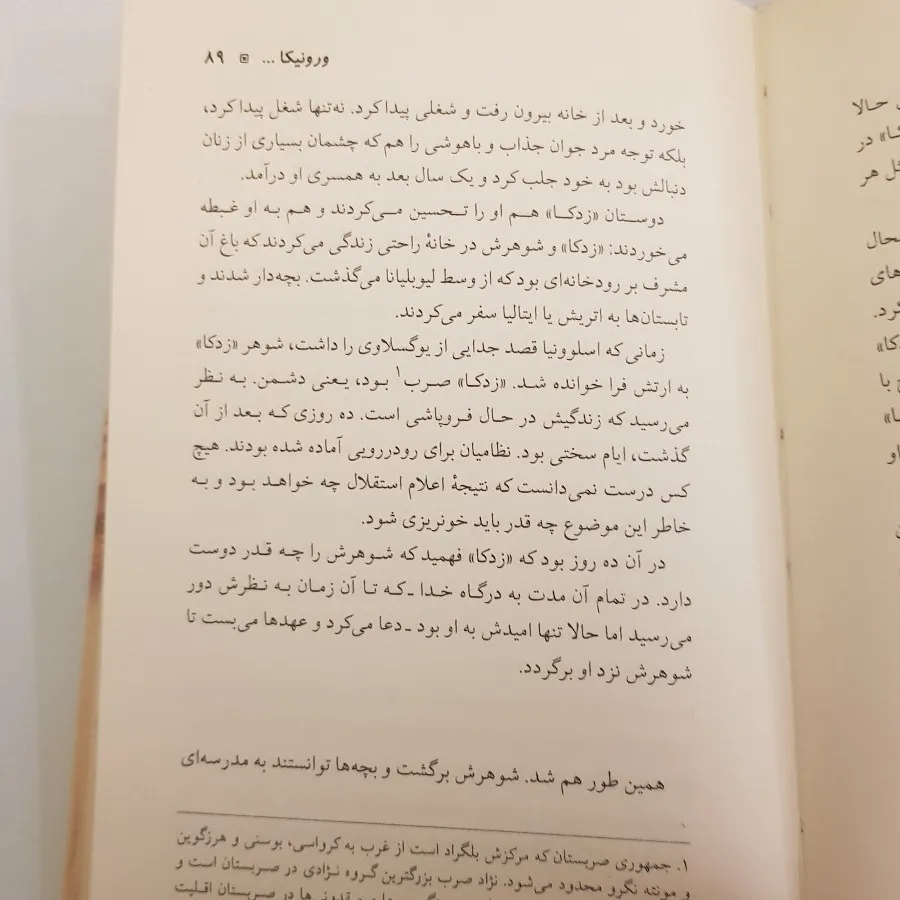 ورونیکا ... ▣ ۸۹
خورد و بعد از خانه بیرون رفت و شغلی پیدا کرد. نه‌تنها شغل پیدا کرد،
بلکه توجه مرد جوان جذاب و باهوشی را هم که چشمان بسیاری از زنان
دنبالش بود به خود جلب کرد و یک سال بعد به همسری او درآمد.
دوستان «زدکا» هم او را تحسین می‌کردند و هم به او غبطه
می‌خوردند: «زدکا» و شوهرش در خانهٔ راحتی زندگی می‌کردند که باغ آن
مشرف بر رودخانه‌ای بود که از وسط لیوبلیانا می‌گذشت. بچه‌دار شدند و
تابستان‌ها به اتریش یا ایتالیا سفر می‌کردند.
زمانی که اسلوونیا قصد جدایی از یوگسلاوی را داشت، شوهر «زدکا»
به ارتش فرا خوانده شد. «زدکا» صرب۱ بود، یعنی دشمن. به نظر
می‌رسید که زندگیش در حال فروپاشی است. ده روزی که بعد از آن
گذشت، ایام سختی بود. نظامیان برای رودررویی آماده شده بودند. هیچ
کس درست نمی‌دانست که نتیجهٔ اعلام استقلال چه خواهد بود و به
خاطر این موضوع چه قدر باید خونریزی شود.
در آن ده روز بود که «زدکا» فهمید که شوهرش را چه قدر دوست
دارد. در تمام آن مدت به درگاه خدا ـ که تا آن زمان به نظرش دور
می‌رسید اما حالا تنها امیدش به او بود ـ دعا می‌کرد و عهدها می‌بست تا
شوهرش نزد او برگردد.
همین طور هم شد. شوهرش برگشت و بچه‌ها توانستند به مدرسه‌ای
۱. جمهوری صربستان که مرکزش بلگراد است از غرب به کرواسی، بوسنی و هرزگوین
و مونته نگرو محدود می‌شود. نژاد صرب بزرگترین گروه نژادی در صربستان است و
در صربستان اقلیت
حالا
در
هر